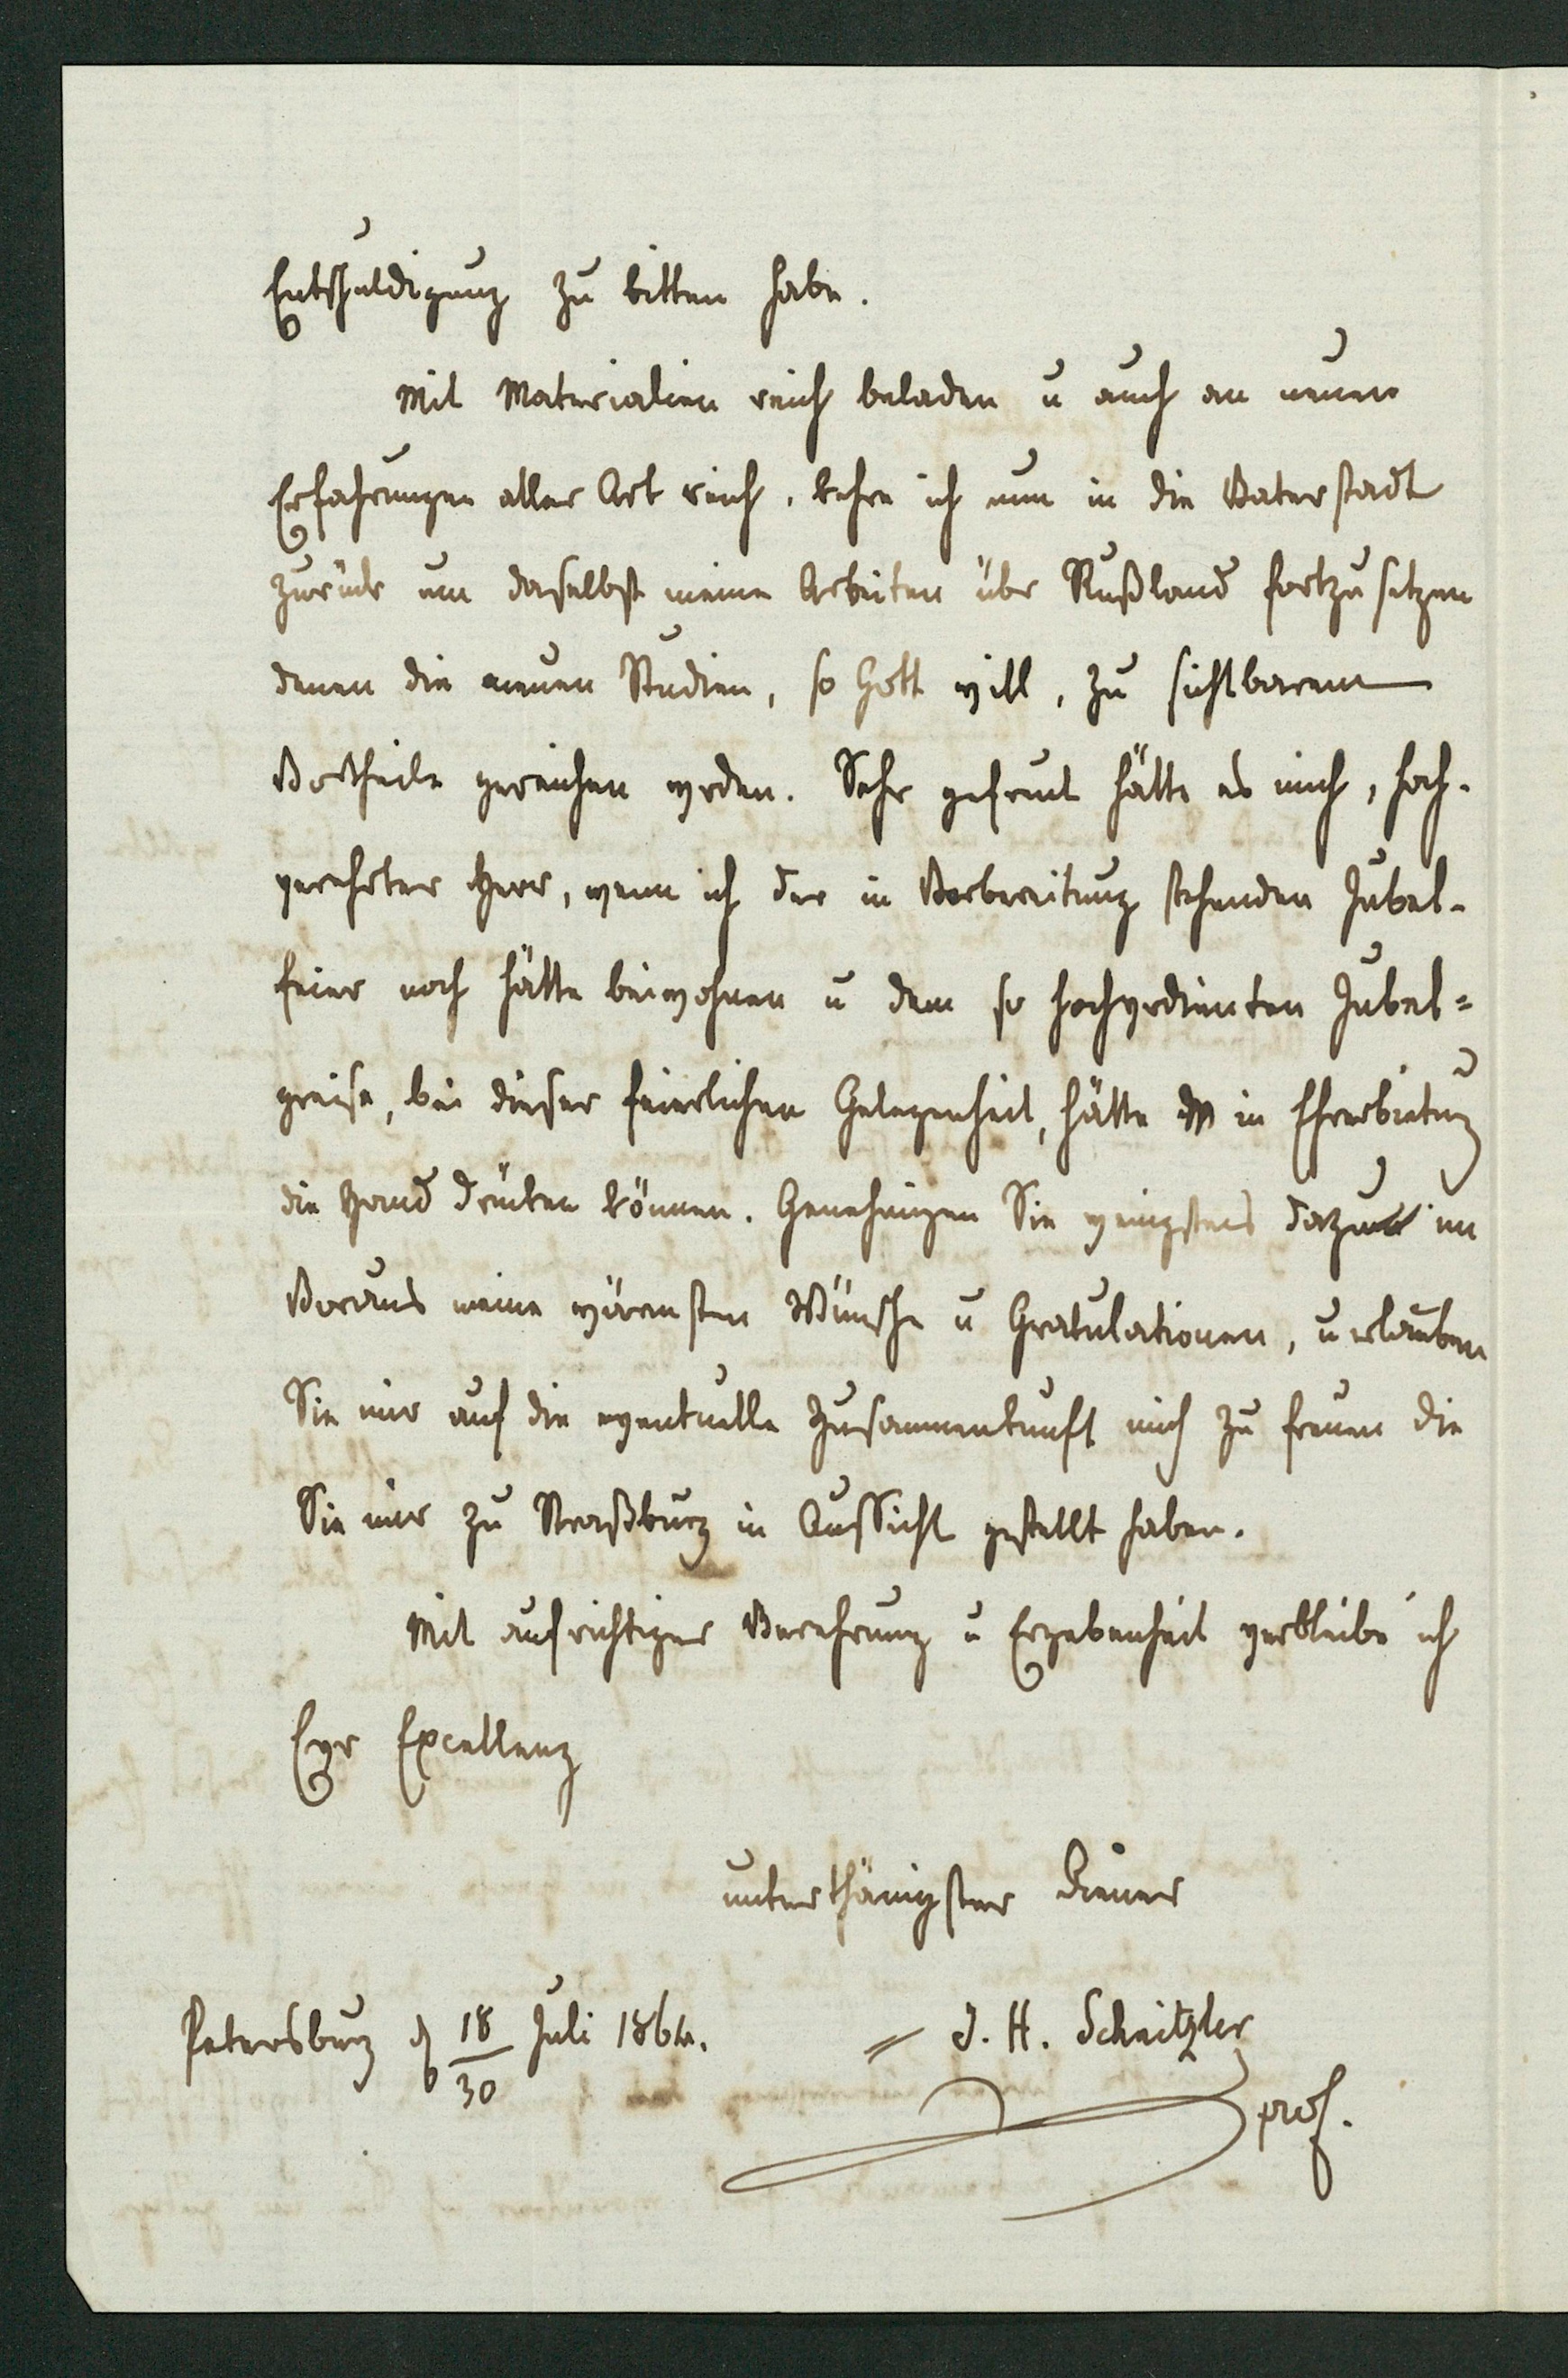 Entschuldigung zu bitten habe.
Mit Materialien reich beladen u auch an neuen
Erfahrungen aller Art reich, kehre ich nun in die Vaterstadt
zurück um daselbst meine Arbeiten über Rußland fortzusetzen
denen die neuen Studien, so Gott will, zu sichtbarem
Vortheile gereichen werden. Sehr gefreut hätte es mich, hoch-
verehrter Herr, wenn ich der in Vorbereitung stehenden Jubel-
feier noch hätte beiwohnen u dem so hochverdienten Jubel=
greise, bei dieser feierlichen Gelegenheit, hätte in Ehrerbietung
die Hand drücken können. Genehmigen Sie wenigstens dazu im
Voraus meine wärmsten Wünsche u Gratulationen, u erlauben
Sie mir auf die eventuelle Zusammenkunft mich zu freuen die
Sie mir zu Straßburg in Aussicht gestellt haben.
Mit aufrichtiger Verehrung u Ergebenheit verbleibe ich
Ewr Excellenz
unterthänigster Diener
Petersburg d 18/30 Juli 1864.
J. H. Schnitzler
prof.